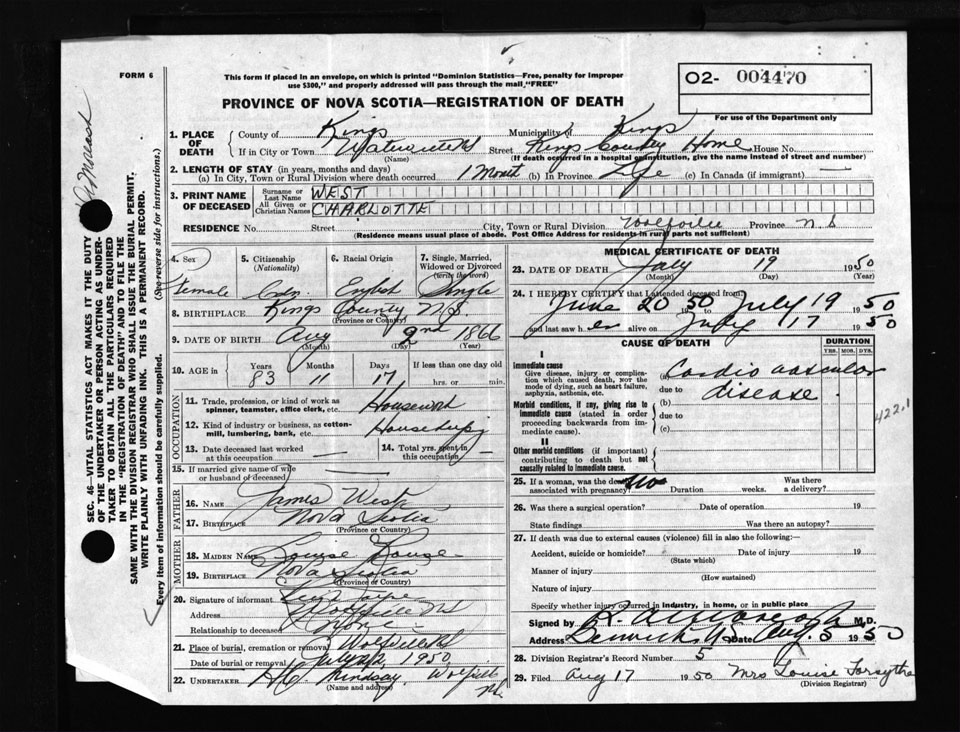 FORM 6
This form if placed in an envelope, on which is printed "Dominion Statistics—Free, penalty for improper
use $300," and properly addressed will pass through the mail, "FREE"
PROVINCE OF NOVA SCOTIA—REGISTRATION OF DEATH
O2- 004470
For use of the Department only
1. PLACE OF DEATH { County of Kings Municipality of Kings
If in City or Town (Name) Street Kings County Home House No.
(If death occurred in a hospital or institution, give the name instead of street and number)
2. LENGTH OF STAY (in years, months and days)
(a) In City, Town or Rural Division where death occurred 1 Month (b) In Province Life (c) In Canada (if immigrant) —
3. PRINT NAME OF DECEASED { Surname or Last Name WEST
All Given or Christian Names CHARLOTTE
RESIDENCE No. Street City, Town or Rural Division Wolfville Province N.S
(Residence means usual place of abode. Post Office Address for residents in rural parts not sufficient)
4. Sex Female
5. Citizenship (Nationality) Cdn
6. Racial Origin English
7. Single, Married, Widowed or Divorced (write the word) Single
8. BIRTHPLACE Kings County N.S.
(Province or Country)
9. DATE OF BIRTH Aug 2nd 1866
(Month) (Day) (Year)
10. AGE in Years 83 Months 11 Days 17 If less than one day old hrs. or min.
OCCUPATION
11. Trade, profession, or kind of work as spinner, teamster, office clerk, etc. Housework
12. Kind of industry or business, as cotton-mill, lumbering, bank, etc. Housekeeping
13. Date deceased last worked at this occupation —
14. Total yrs. spent in this occupation
15. If married give name of wife or husband of deceased —
FATHER
16. Name James West
17. Birthplace Nova Scotia
(Province or Country)
MOTHER
18. Maiden Name Louise
19. Birthplace Nova Scotia
(Province or Country)
20. Signature of informant
Address Wolfville NS
Relationship to deceased None
21. Place of burial, cremation or removal Wolfville NS
Date of burial or removal July 1950
22. UNDERTAKER H.C. Lindsay, Wolfville
(Name and address) NS.
MEDICAL CERTIFICATE OF DEATH
23. DATE OF DEATH July 19 1950
(Month) (Day) (Year)
24. I HEREBY CERTIFY that I attended deceased from
June 20 1950 to July 19 1950
and last saw her alive on July 17 1950
CAUSE OF DEATH
DURATION
YRS. MOS. DYS.
I
Immediate cause
Give disease, injury or complication which caused death, not the mode of dying, such as heart failure, asphyxia, asthenia, etc.
(a) Cardio vascular
due to disease.
Morbid conditions, if any, giving rise to immediate cause (stated in order proceeding backwards from immediate cause).
(b)
due to
(c)
422.1
II
Other morbid conditions (if important) contributing to death but not causally related to immediate cause.
25. If a woman, was the death associated with pregnancy? No Duration weeks. Was there a delivery?
26. Was there a surgical operation? Date of operation 19
State findings Was there an autopsy?
27. If death was due to external causes (violence) fill in also the following:—
Accident, suicide or homicide? Date of injury 19
(State which)
Manner of injury
(How sustained)
Nature of injury
Specify whether injury occurred in industry, in home, or in public place
Signed by M.D.
Address Berwick NS Date Aug. 5 1950
28. Division Registrar's Record Number 5
29. Filed Aug 17 1950 Mrs Louise Forsythe
(Division Registrar)
SEC. 46—VITAL STATISTICS ACT MAKES IT THE DUTY
OF THE UNDERTAKER OR PERSON ACTING AS UNDERTAKER
TO OBTAIN ALL THE PARTICULARS REQUIRED
IN THE "REGISTRATION OF DEATH" AND TO FILE THE
SAME WITH THE DIVISION REGISTRAR WHO SHALL ISSUE THE BURIAL PERMIT.
WRITE PLAINLY WITH UNFADING INK. THIS IS A PERMANENT RECORD.
Every item of information should be carefully supplied. (See reverse side for instructions.)